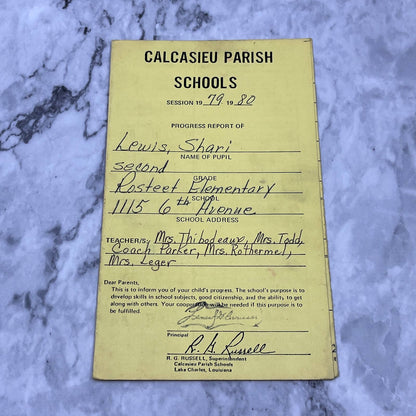 CALCASIEU PARISH
SCHOOLS
SESSION 19 79 19 80
PROGRESS REPORT OF
Lewis, Shari
NAME OF PUPIL
second
GRADE
Rosteet Elementary
SCHOOL
1115 6th Avenue
SCHOOL ADDRESS
TEACHER/S: Mrs. Thibodeaux, Mrs. Todd,
Coach Parker, Mrs. Rothermel,
Mrs. Leger
Dear Parents,
This is to inform you of your child's progress. The school's purpose is to
develop skills in school subjects, good citizenship, and the ability, to get
along with others. Your cooperation will be needed if this purpose is to
be fulfilled.
Principal
R. G. Russell
R. G. RUSSELL, Superintendent
Calcasieu Parish Schools
Lake Charles, Louisiana